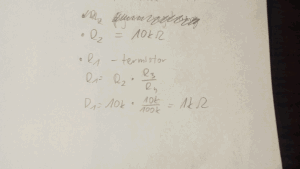 • R₂ = 10k Ω
• R1 – termistor
R1 = R₂ · R₃/R₄
R1 = 10k · 10k/100k = 1k Ω